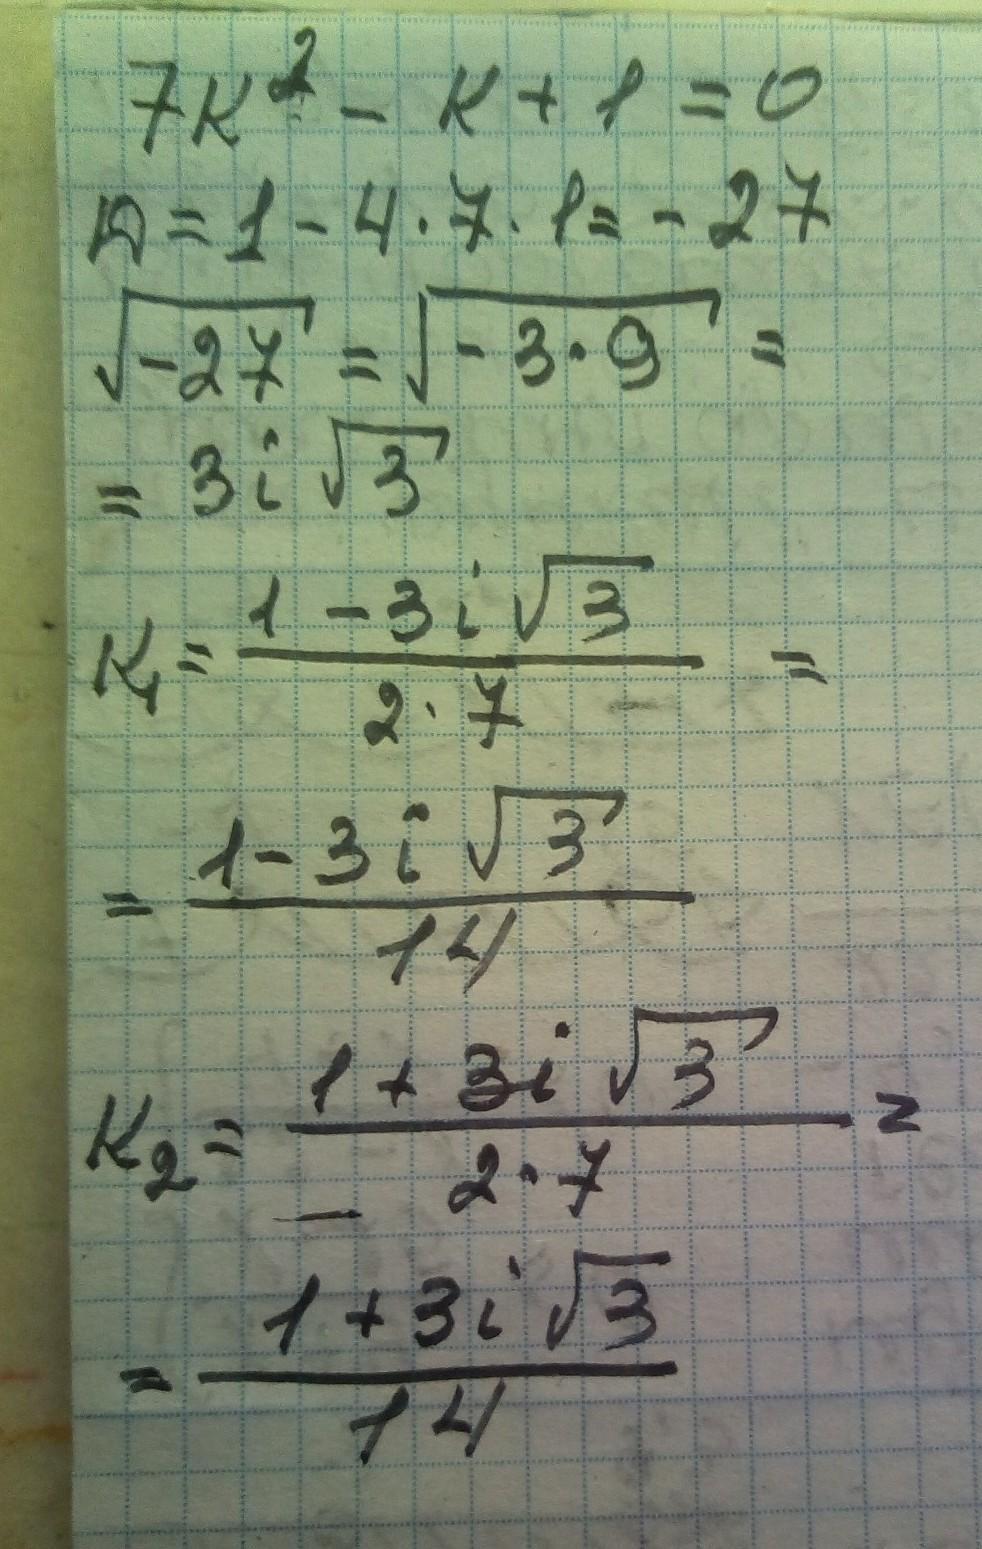 7к² - к + 1 = 0
D = 1 - 4 · 7 · 1 = - 27
√-27 = √-3 · 9 =
= 3i √3
к₁ = (1 - 3i √3)/(2 · 7) =
= (1 - 3i √3)/14
к₂ = (1 + 3i √3)/(2 · 7) =
= (1 + 3i √3)/14